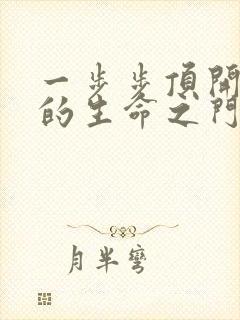 一步步頂開
的生命之門
月半彎